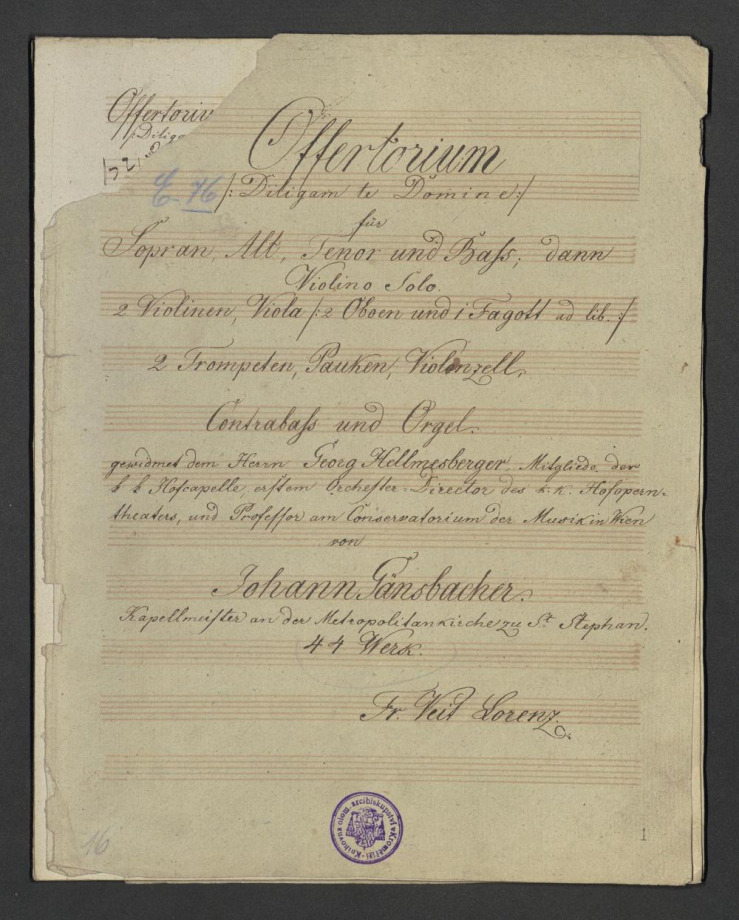 Offertoriu
/: Diliga
Offertorium
E. 76
/: Diligam te Domine :/
für
Sopran, Alt, Tenor und Baſs, dann
Violino Solo.
2 Violinen, Viola /: 2 Oboen und 1 Fagott ad lib. :/
2 Trompeten, Pauken, Violonzell,
Contrabaſs und Orgel.
gewidmet dem Herrn Georg Hellmesberger, Mitgliede der
k k Hofcapelle, erſtem Orcheſter-Director des k. k. Hofopern-
theaters, und Profeſſor am Conservatorium der Musik in Wien
von
Johann Gänsbacher.
Kapellmeiſter an der Metropolitankirche zu St. Stephan.
44 Werk.
Fr. Veit Lorenz.
Knihovna olom. arcibiskupství v Kroměříži
16
1